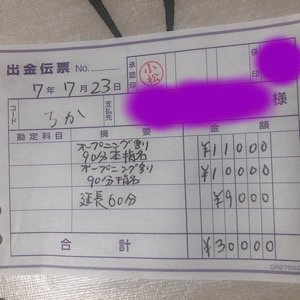 出金伝票 No.
承認印 小松 係印
7年7月23日
コード ちか 支払先 様
勘定科目 摘要 金額
オープニング割
90分本指名 ¥11000
オープニング割
90分指名 ¥10000
延長60分 ¥9000
合計 ¥30000